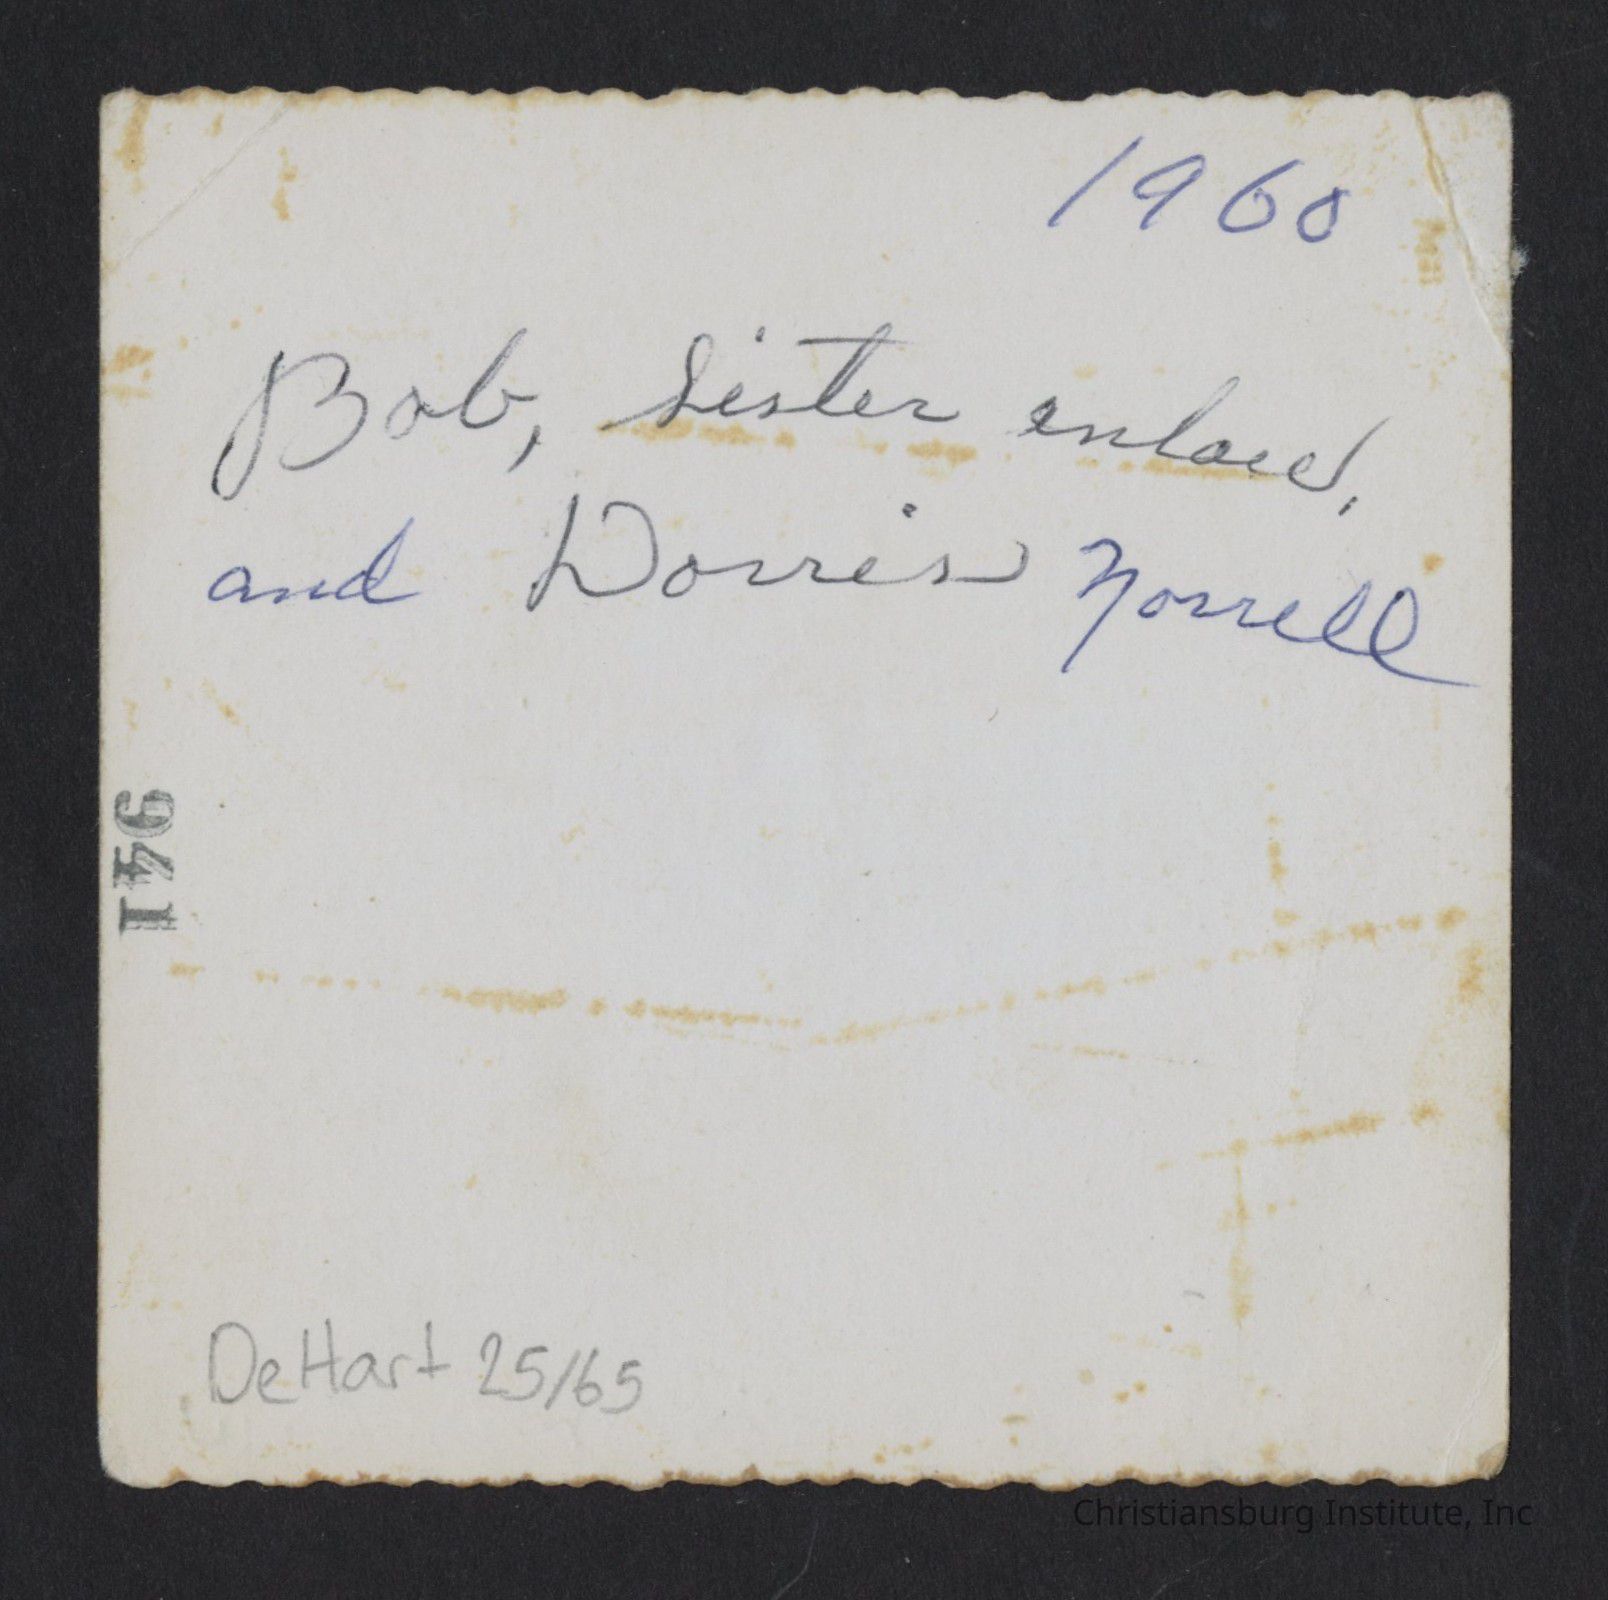 1960
Bob, Sister enlaw,
and Dorris Norrell
941
DeHart 25/65
Christiansburg Institute, Inc